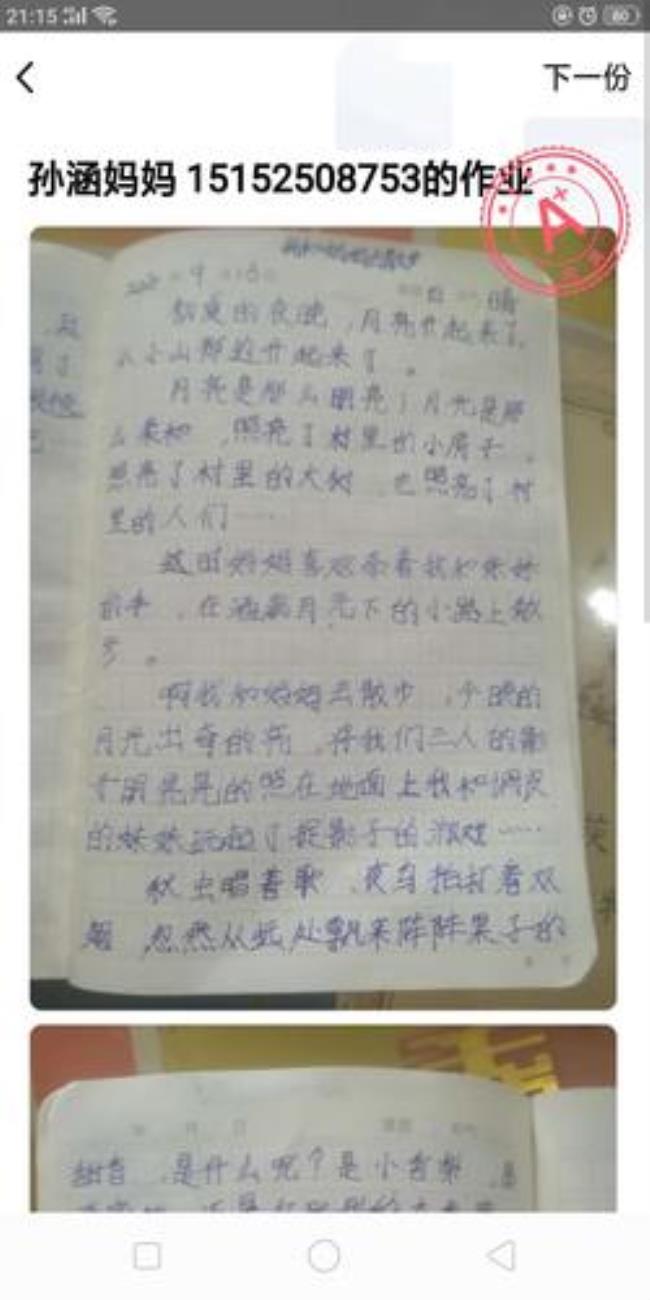 21:15
80
下一份
孙涵妈妈 15152508753的作业
A
9 6 日 晴
的夜晚，月亮升起来了，
从小山那边升起来了。
月亮是那么明亮，月光是那
么柔和，照亮了村里的小房子，
照亮了村里的大树，也照亮了村
里的人们……
这时妈妈喜欢牵着我和妹妹
的手，在洒满月光下的小路上散
步。
啊我和妈妈去散步，今晚的
月光出奇的亮，将我们三人的影
子明晃晃的照在地面上我和调皮
的妹妹玩起了捉影子的游戏……
秋虫唱着歌，夜鸟拍打着双
翅，忽然从远处飘来阵阵果子的
甜香，是什么呢？是小